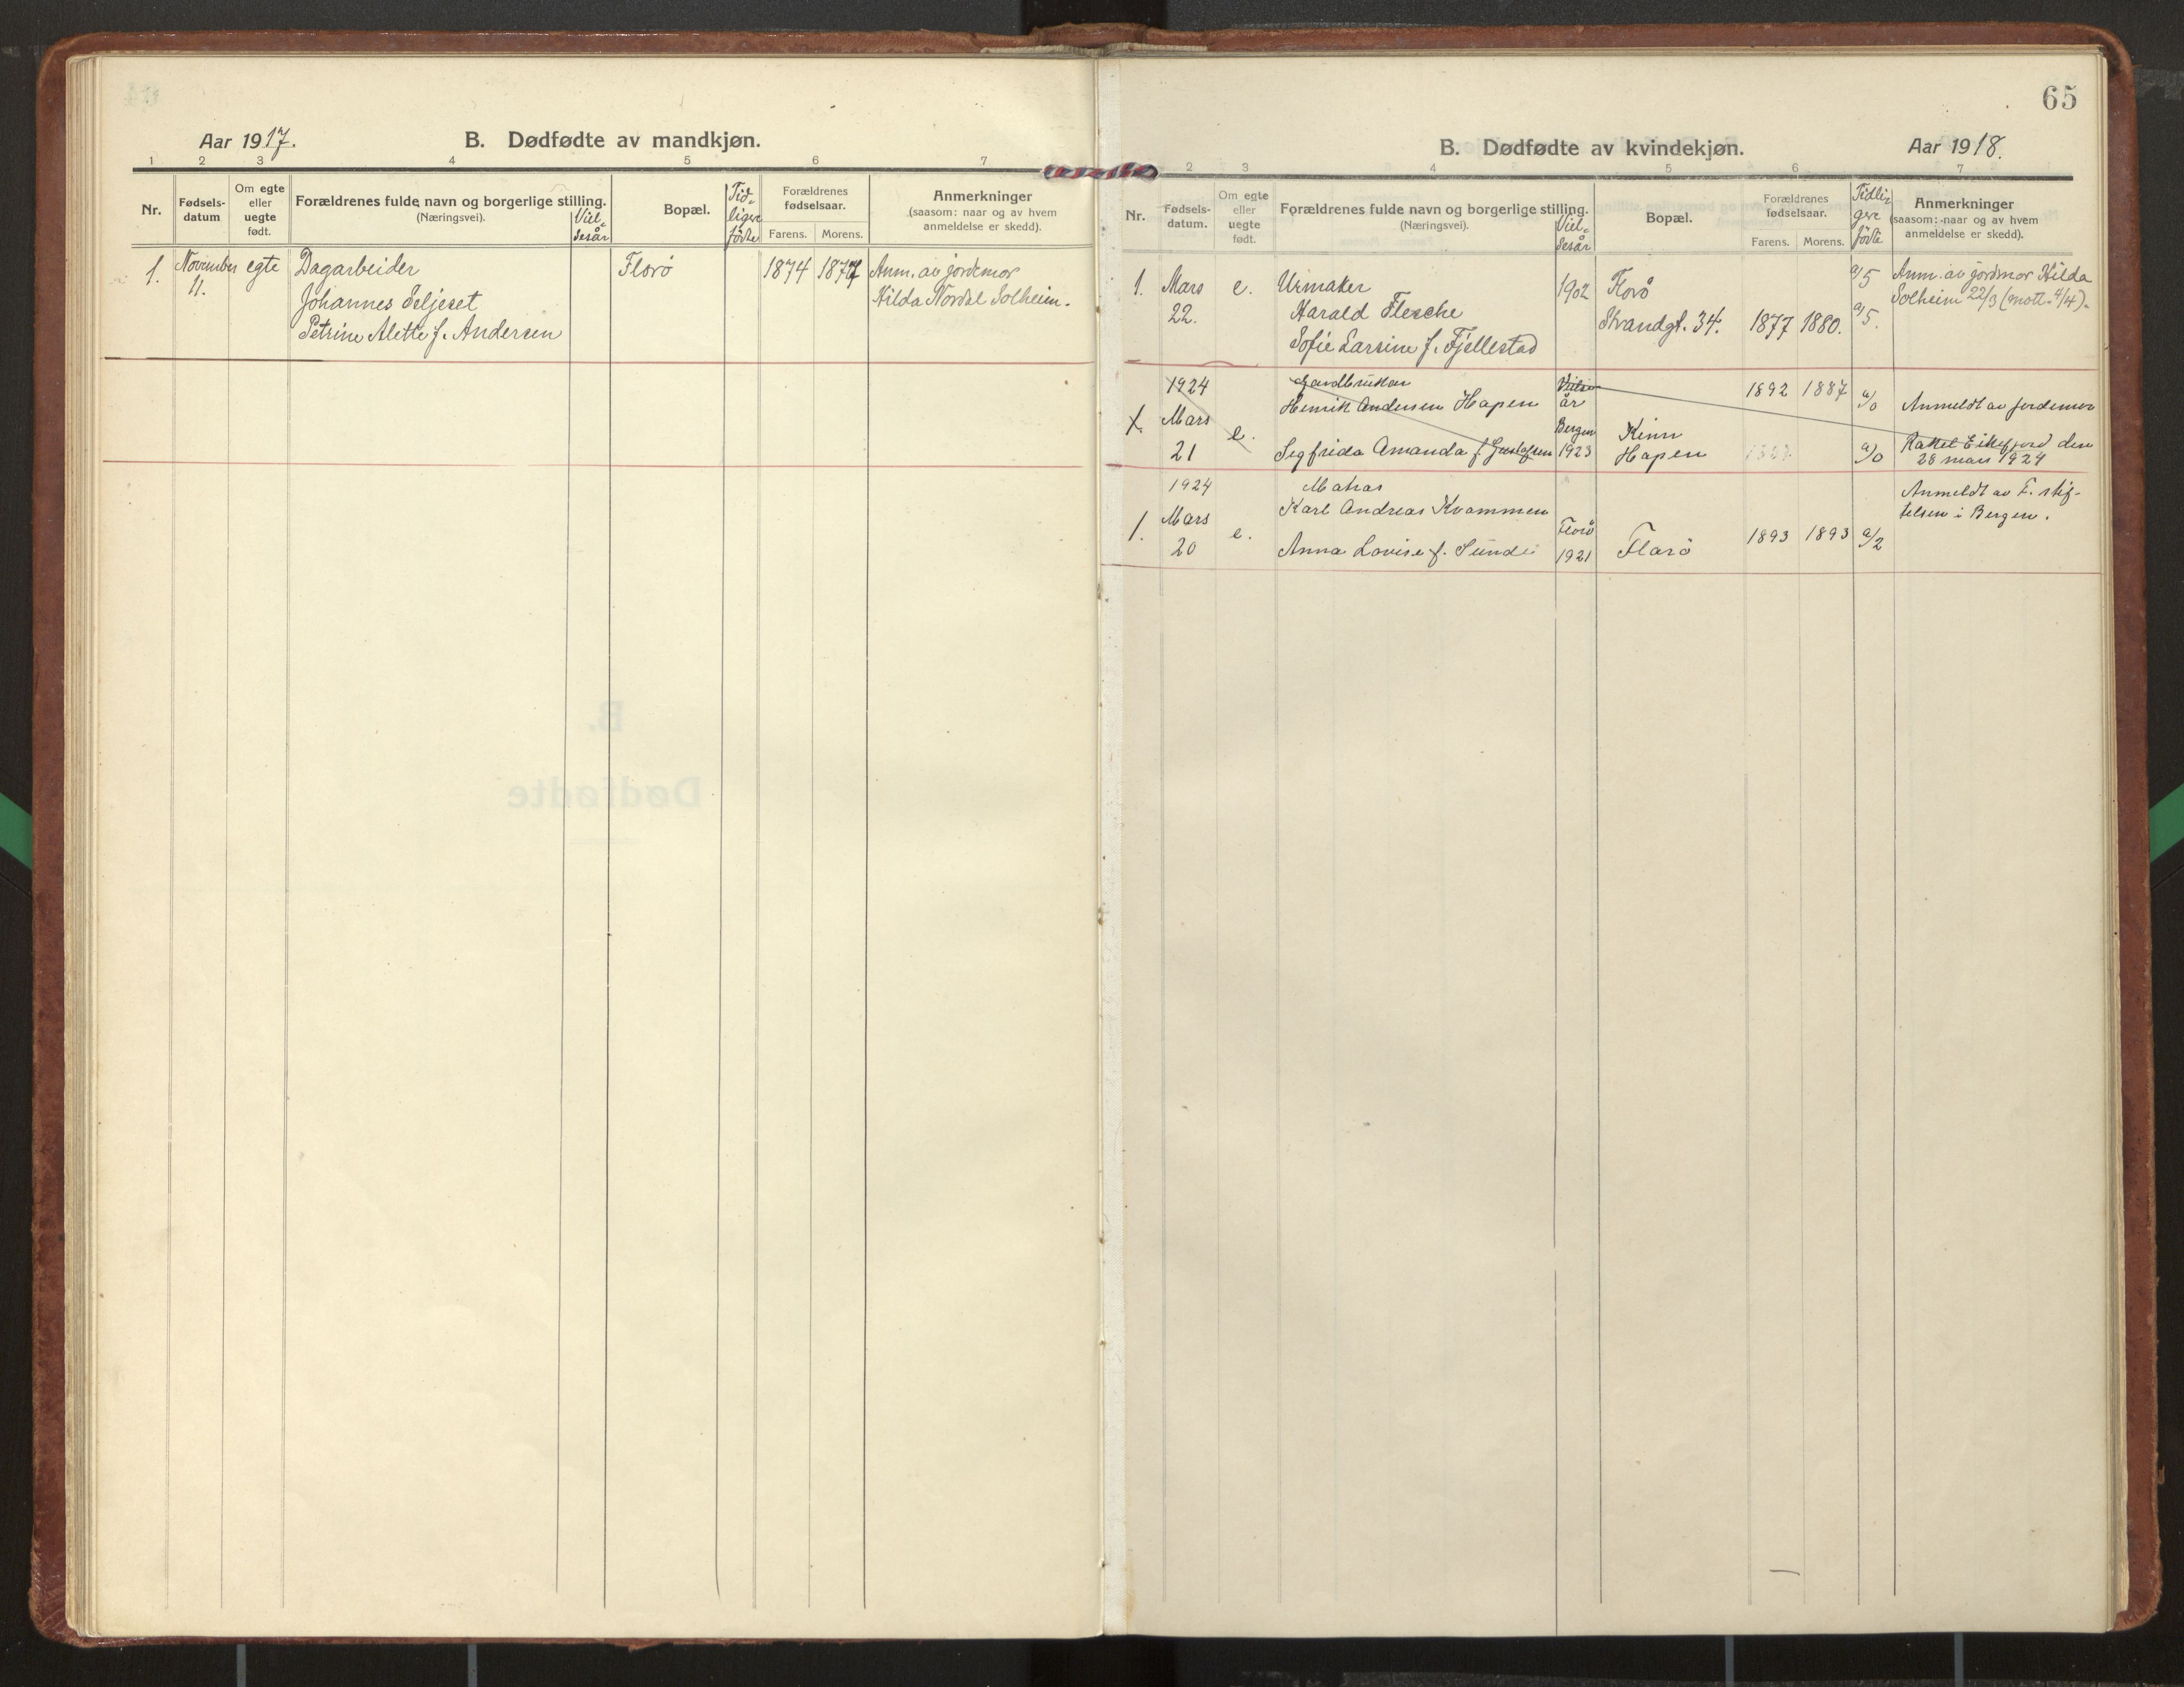 Aar 1917.
B. Dødfødte av mandkjøn.
1 2 3 4 5 6 7
Nr.
Fødsels-
datum
Om egte
eller
uegte
født.
Forældrenes fulde navn og borgerlige stilling.
(Næringsvei).
Viel-
sesår
Bopæl.
Tid-
ligere
fødte
Forældrenes
fødselsaar.
Farens. Morens.
Anmerkninger
(saasom: naar og av hvem
anmeldelse er skedd).
1. November egte Dagarbeider Florö 1874 1877 Anm. av jordemor
11. Johannes Seljeset Hilda Nordal Solheim.
Petrine Alette f. Andersen
B.
Dødfødte
65
B. Dødfødte av kvindekjøn.
Aar 1918.
2 3 4 5 6 7
Nr.
Fødsels-
datum.
Om egte
eller
uegte
født.
Forældrenes fulde navn og borgerlige stilling.
(Næringsvei).
Viel-
sesår
Bopæl.
Forældrenes
fødselsaar.
Farens. Morens.
Tidli-
gere
fødte
Anmerkninger
(saasom: naar og av hvem
anmeldelse er skedd).
1. Mars e. Urmaker 1902 Florö a/5 Anm. av jordmor Hilda
22. Harald Flesche Strandgt. 34. 1877 1880. a/5. Solheim 22/3 (mott. 4/4).
Sofie Larsine f. Fjellestad
1924 Gardbruker Vielses 1892 1887 a/0
1. Mars e. Henrik Andersen Hapen år Anmeldt av jordemor
21 Segfrida Amanda f. Gustafsen Bergen
1923 Kinn
Hapen a/0 Rakel Eikefjord den
28 mars 1924
1924 Matros Anmeldt av F. stif-
1. Mars e. Karl Andreas Kvammen Florö telsen i Bergen.
20 Anna Lovise f. Sunde 1921 Florö 1893 1893 a/2